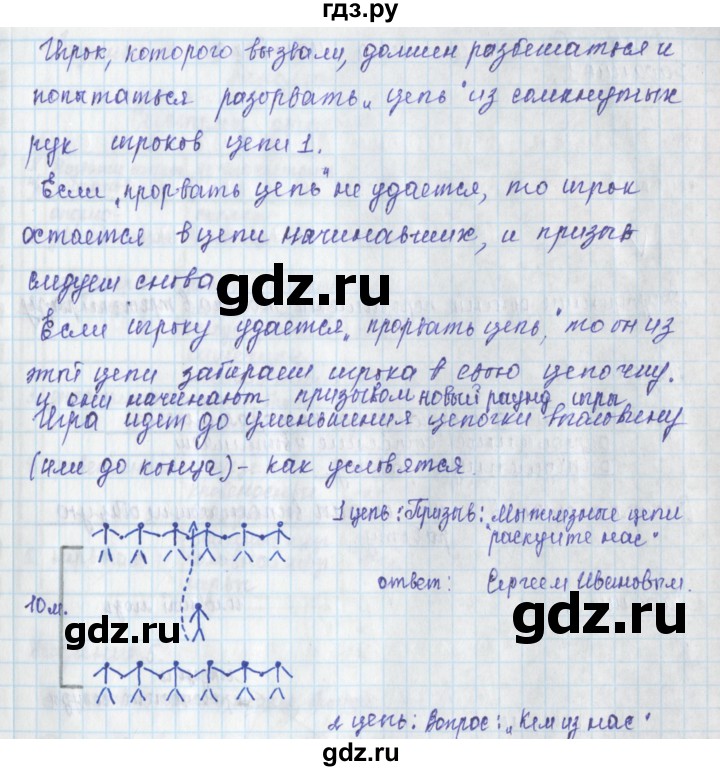 гдз.ру
Игрок, которого вызвали, должен разбежаться и
попытаться разорвать „цепь" из сомкнутых
рук игроков цепи 1.
Если „прорвать цепь" не удается, то игрок
остается в цепи начинавших, и призыв
следует снова
gdz.ru
Если игроку удается „прорвать цепь," то он из
этой цепи забирает игрока в свою цепочку.
и они начинают призывом новый раунд игры.
Игра идет до уменьшения цепочки вполовину
(или до конца) – как условятся.
1 цепь: Призыв: „Мы железные цепи
раскуйте нас"
ответ: Сергеем Ивановым.
10 м.
gdz.ru
gdz.ru
2 цепь: Вопрос: „Кем из нас"
gdz.ru